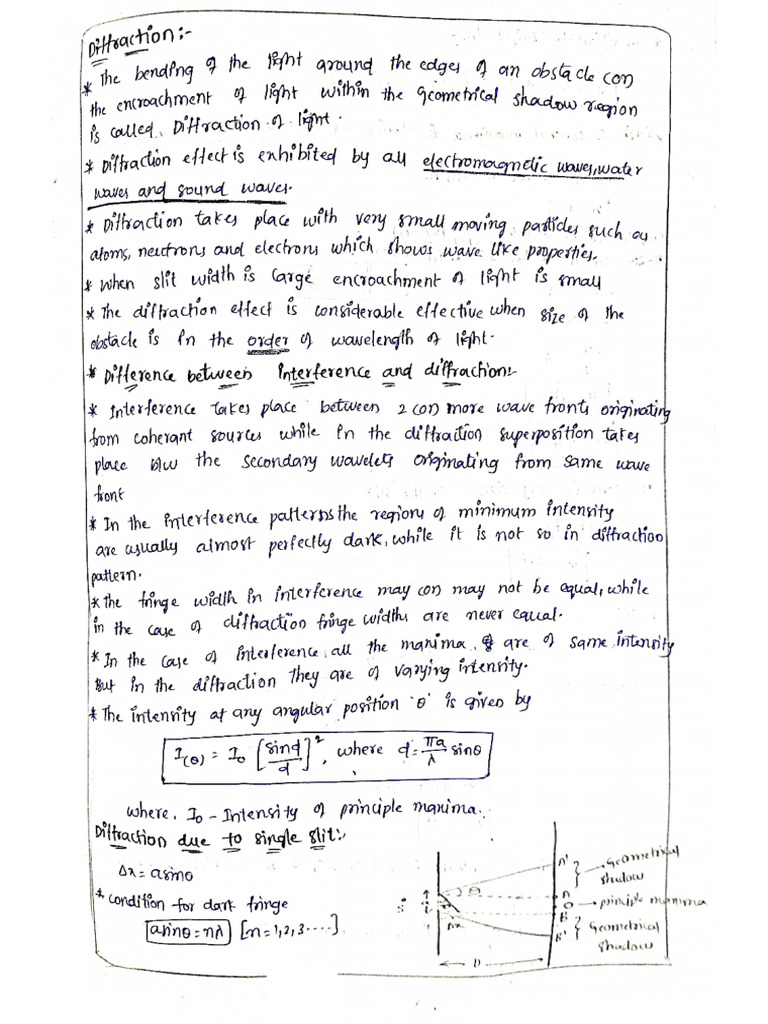 Diffraction:-
* The bending of the light around the edges of an obstacle (or)
the encroachment of light within the geometrical shadow region
is called Diffraction of light.
* Diffraction effect is exhibited by all electromagnetic waves, water
waves and sound waves.
* Diffraction takes place with very small moving particles such as
atoms, neutrons and electrons which shows wave like properties.
* When slit width is large encroachment of light is small
* The diffraction effect is considerable effective when size of the
obstacle is in the order of wavelength of light.
* Difference between interference and diffraction:-
* Interference takes place between 2 (or) more wave fronts originating
from coherant sources while in the diffraction superposition takes
place b/w the secondary wavelets originating from same wave
front
* In the interference patterns the regions of minimum intensity
are usually almost perfectly dark, while it is not so in diffraction
pattern.
* The fringe width in interference may (or) may not be equal, while
in the case of diffraction fringe widths are never equal.
* In the case of interference, all the maxima, are of same intensity
But in the diffraction they are of varying intensity.
* The intensity at any angular position 'θ' is given by
I(θ) = I₀ [sinα/α]², where α = πa/λ sinθ
where, I₀ - Intensity of principle maxima.
Diffraction due to single slit:-
Δx = a sinθ
* condition for dark fringe
a sinθ = nλ [n = 1, 2, 3 ....]
A' } → Geometrical
shadow
θ
A
O → principle maxima
S
B
Δx
B' } Geometrical
shadow
← D →